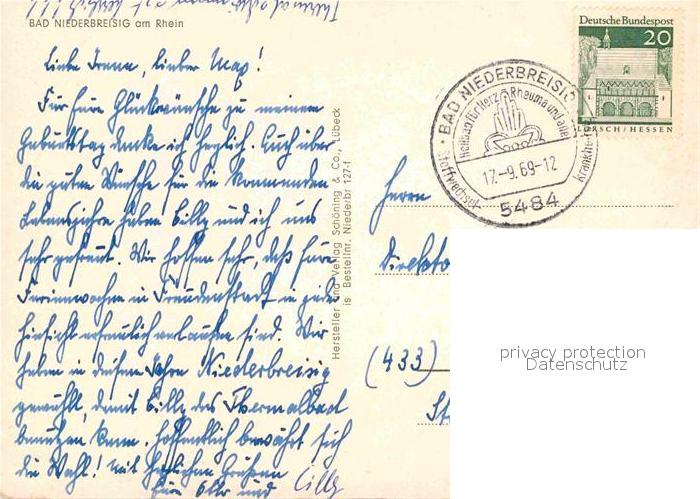 BAD NIEDERBREISIG am Rhein
Liebe Irene, lieber Max!
Für Eure Glückwünsche zu meinem
Geburtstag danke ich herzlich. Auch über
die guten Wünsche für die kommenden
Lebensjahre haben Cilly und ich uns
sehr gefreut. Wir hoffen sehr, daß Eure
Ferienwochen in Freudenstadt in jeder
Hinsicht erfreulich verlaufen sind. Wir
haben in diesem Jahre Niederbreisig
gewählt, damit Cilly das Thermalbad
benutzen kann. Hoffentlich bewährt sich
die Wahl! Mit herzlichen Grüßen
Eure und Cilly
Hersteller und Verlag Schöning & Co., Lübeck
is Bestellnr. Niederbr 127-f
Deutsche Bundespost
20
LORSCH/HESSEN
BAD NIEDERBREISIG
Heilbad für Herz Rheuma und alle
Stoffwechsel- Krankheiten
17.-9.69-12
5484
Herrn
Direkto
(433)
privacy protection
Datenschutz